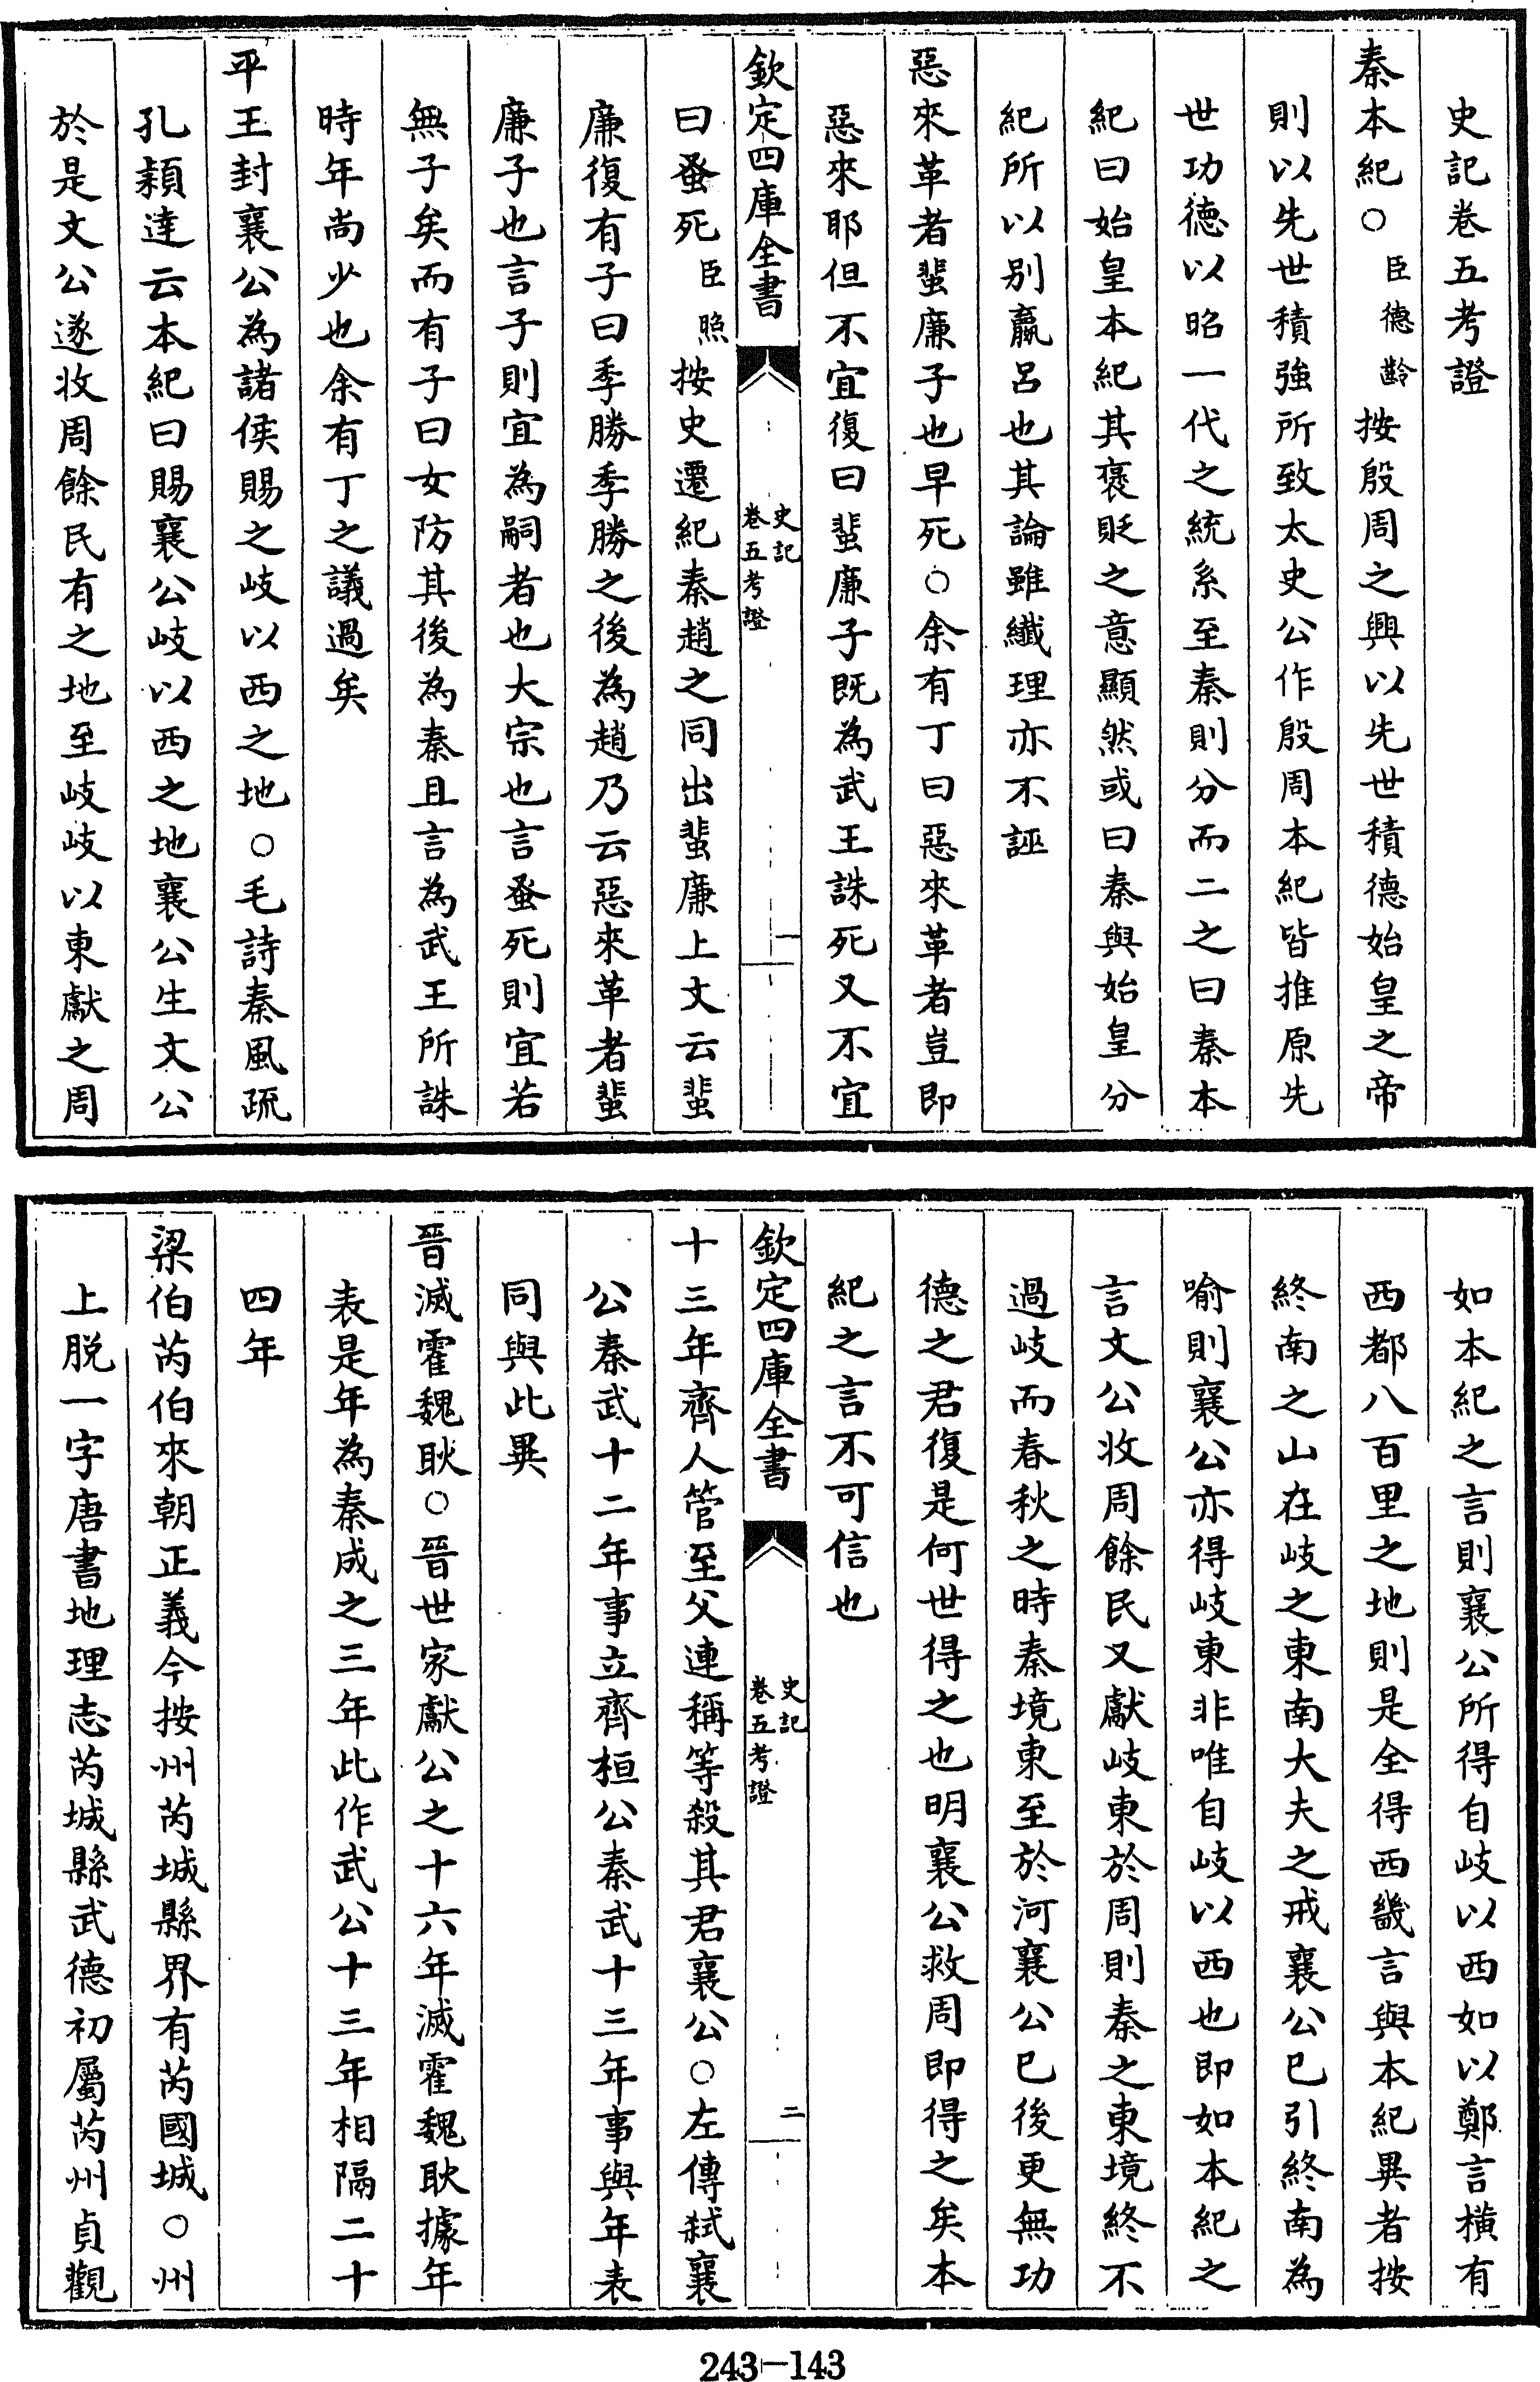 史記卷五考證
秦本紀○臣德齡按殷周之興以先世積德始皇之帝
則以先世積強所致太史公作殷周本紀皆推原先
世功德以昭一代之統系至秦則分而二之曰秦本
紀曰始皇本紀其褒貶之意顯然或曰秦與始皇分
紀所以别嬴呂也其論雖纖理亦不誣
惡來革者蜚廉子也早死○余有丁曰惡來革者豈即
惡來耶但不宜復曰蜚廉子既為武王誅死又不宜
欽定四庫全書
史記
卷五考證
一
曰蚤死臣照按史遷紀秦趙之同出蜚廉上文云蜚
廉復有子曰季勝季勝之後為趙乃云惡來革者蜚
廉子也言子則宜為嗣者也大宗也言蚤死則宜若
無子矣而有子曰女防其後為秦且言為武王所誅
時年尚少也余有丁之議過矣
平王封襄公為諸侯賜之岐以西之地○毛詩秦風疏
孔穎達云本紀曰賜襄公岐以西之地襄公生文公
於是文公遂收周餘民有之地至岐岐以東獻之周
如本紀之言則襄公所得自岐以西如以鄭言橫有
西都八百里之地則是全得西畿言與本紀異者按
終南之山在岐之東南大夫之戒襄公已引終南為
喻則襄公亦得岐東非唯自岐以西也即如本紀之
言文公收周餘民又獻岐東於周則秦之東境終不
過岐而春秋之時秦境東至於河襄公已後更無功
德之君復是何世得之也明襄公救周即得之矣本
紀之言不可信也
欽定四庫全書
史記
卷五考證
二
十三年齊人管至父連稱等殺其君襄公○左傳弑襄
公秦武十二年事立齊桓公秦武十三年事與年表
同與此異
晉滅霍魏耿○晉世家獻公之十六年滅霍魏耿據年
表是年為秦成之三年此作武公十三年相隔二十
四年
梁伯芮伯來朝正義今按州芮城縣界有芮國城○州
上脱一字唐書地理志芮城縣武德初屬芮州貞觀
243-143